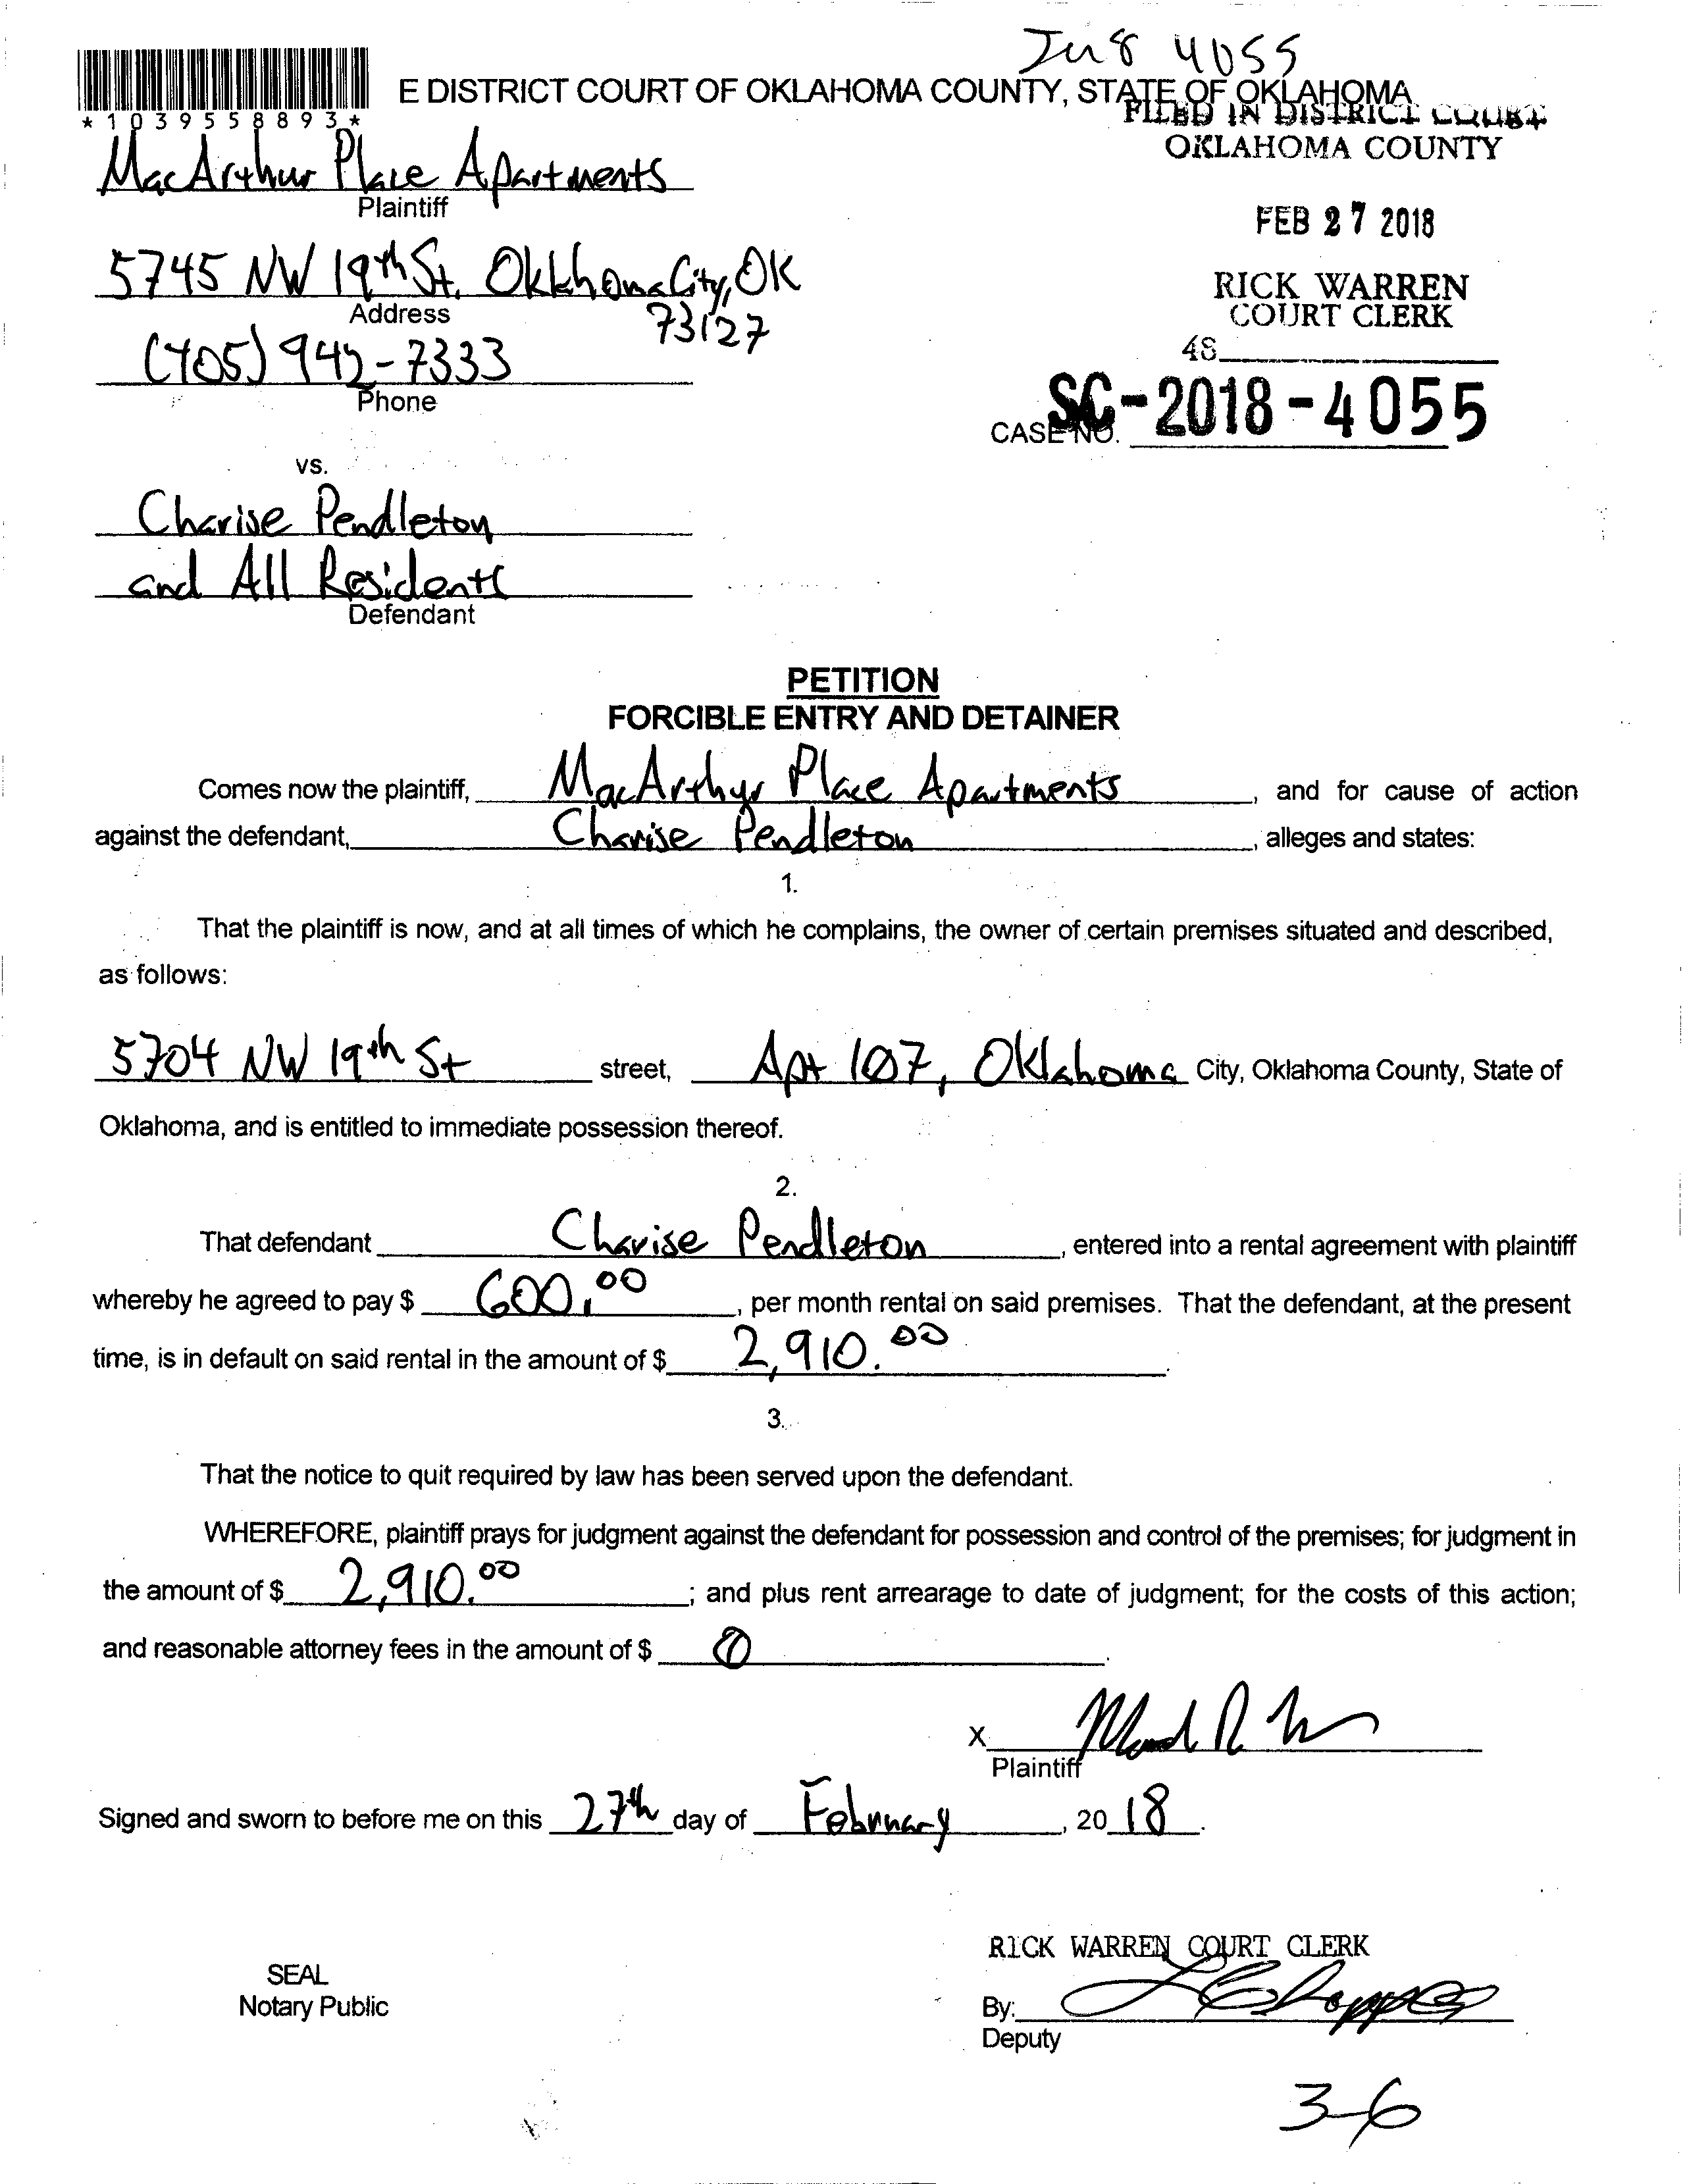 4055
E DISTRICT COURT OF OKLAHOMA COUNTY, STATE OF OKLAHOMA
* 1 0 3 9 5 5 8 8 9 3 *
FILED IN DISTRICT COURT
OKLAHOMA COUNTY
MacArthur Place Apartments
Plaintiff
FEB 27 2018
5745 NW 19th St, Oklahoma City, OK
73127
Address
RICK WARREN
COURT CLERK
(405) 942-7333
Phone
48
CASE NO. SC-2018-4055
vs.
Charise Pendleton
and All Residents
Defendant
PETITION
FORCIBLE ENTRY AND DETAINER
Comes now the plaintiff, MacArthur Place Apartments, and for cause of action
against the defendant, Charise Pendleton, alleges and states:
1.
That the plaintiff is now, and at all times of which he complains, the owner of certain premises situated and described,
as follows:
5704 NW 19th St street, Apt 107, Oklahoma City, Oklahoma County, State of
Oklahoma, and is entitled to immediate possession thereof.
2.
That defendant Charise Pendleton, entered into a rental agreement with plaintiff
whereby he agreed to pay $ 600.00, per month rental on said premises. That the defendant, at the present
time, is in default on said rental in the amount of $ 2,910.00.
3.
That the notice to quit required by law has been served upon the defendant.
WHEREFORE, plaintiff prays for judgment against the defendant for possession and control of the premises; for judgment in
the amount of $ 2,910.00; and plus rent arrearage to date of judgment; for the costs of this action;
and reasonable attorney fees in the amount of $ 0.
X
Plaintiff
Signed and sworn to before me on this 27th day of February, 2018.
RICK WARREN COURT CLERK
SEAL
Notary Public
By:
Deputy
3-6